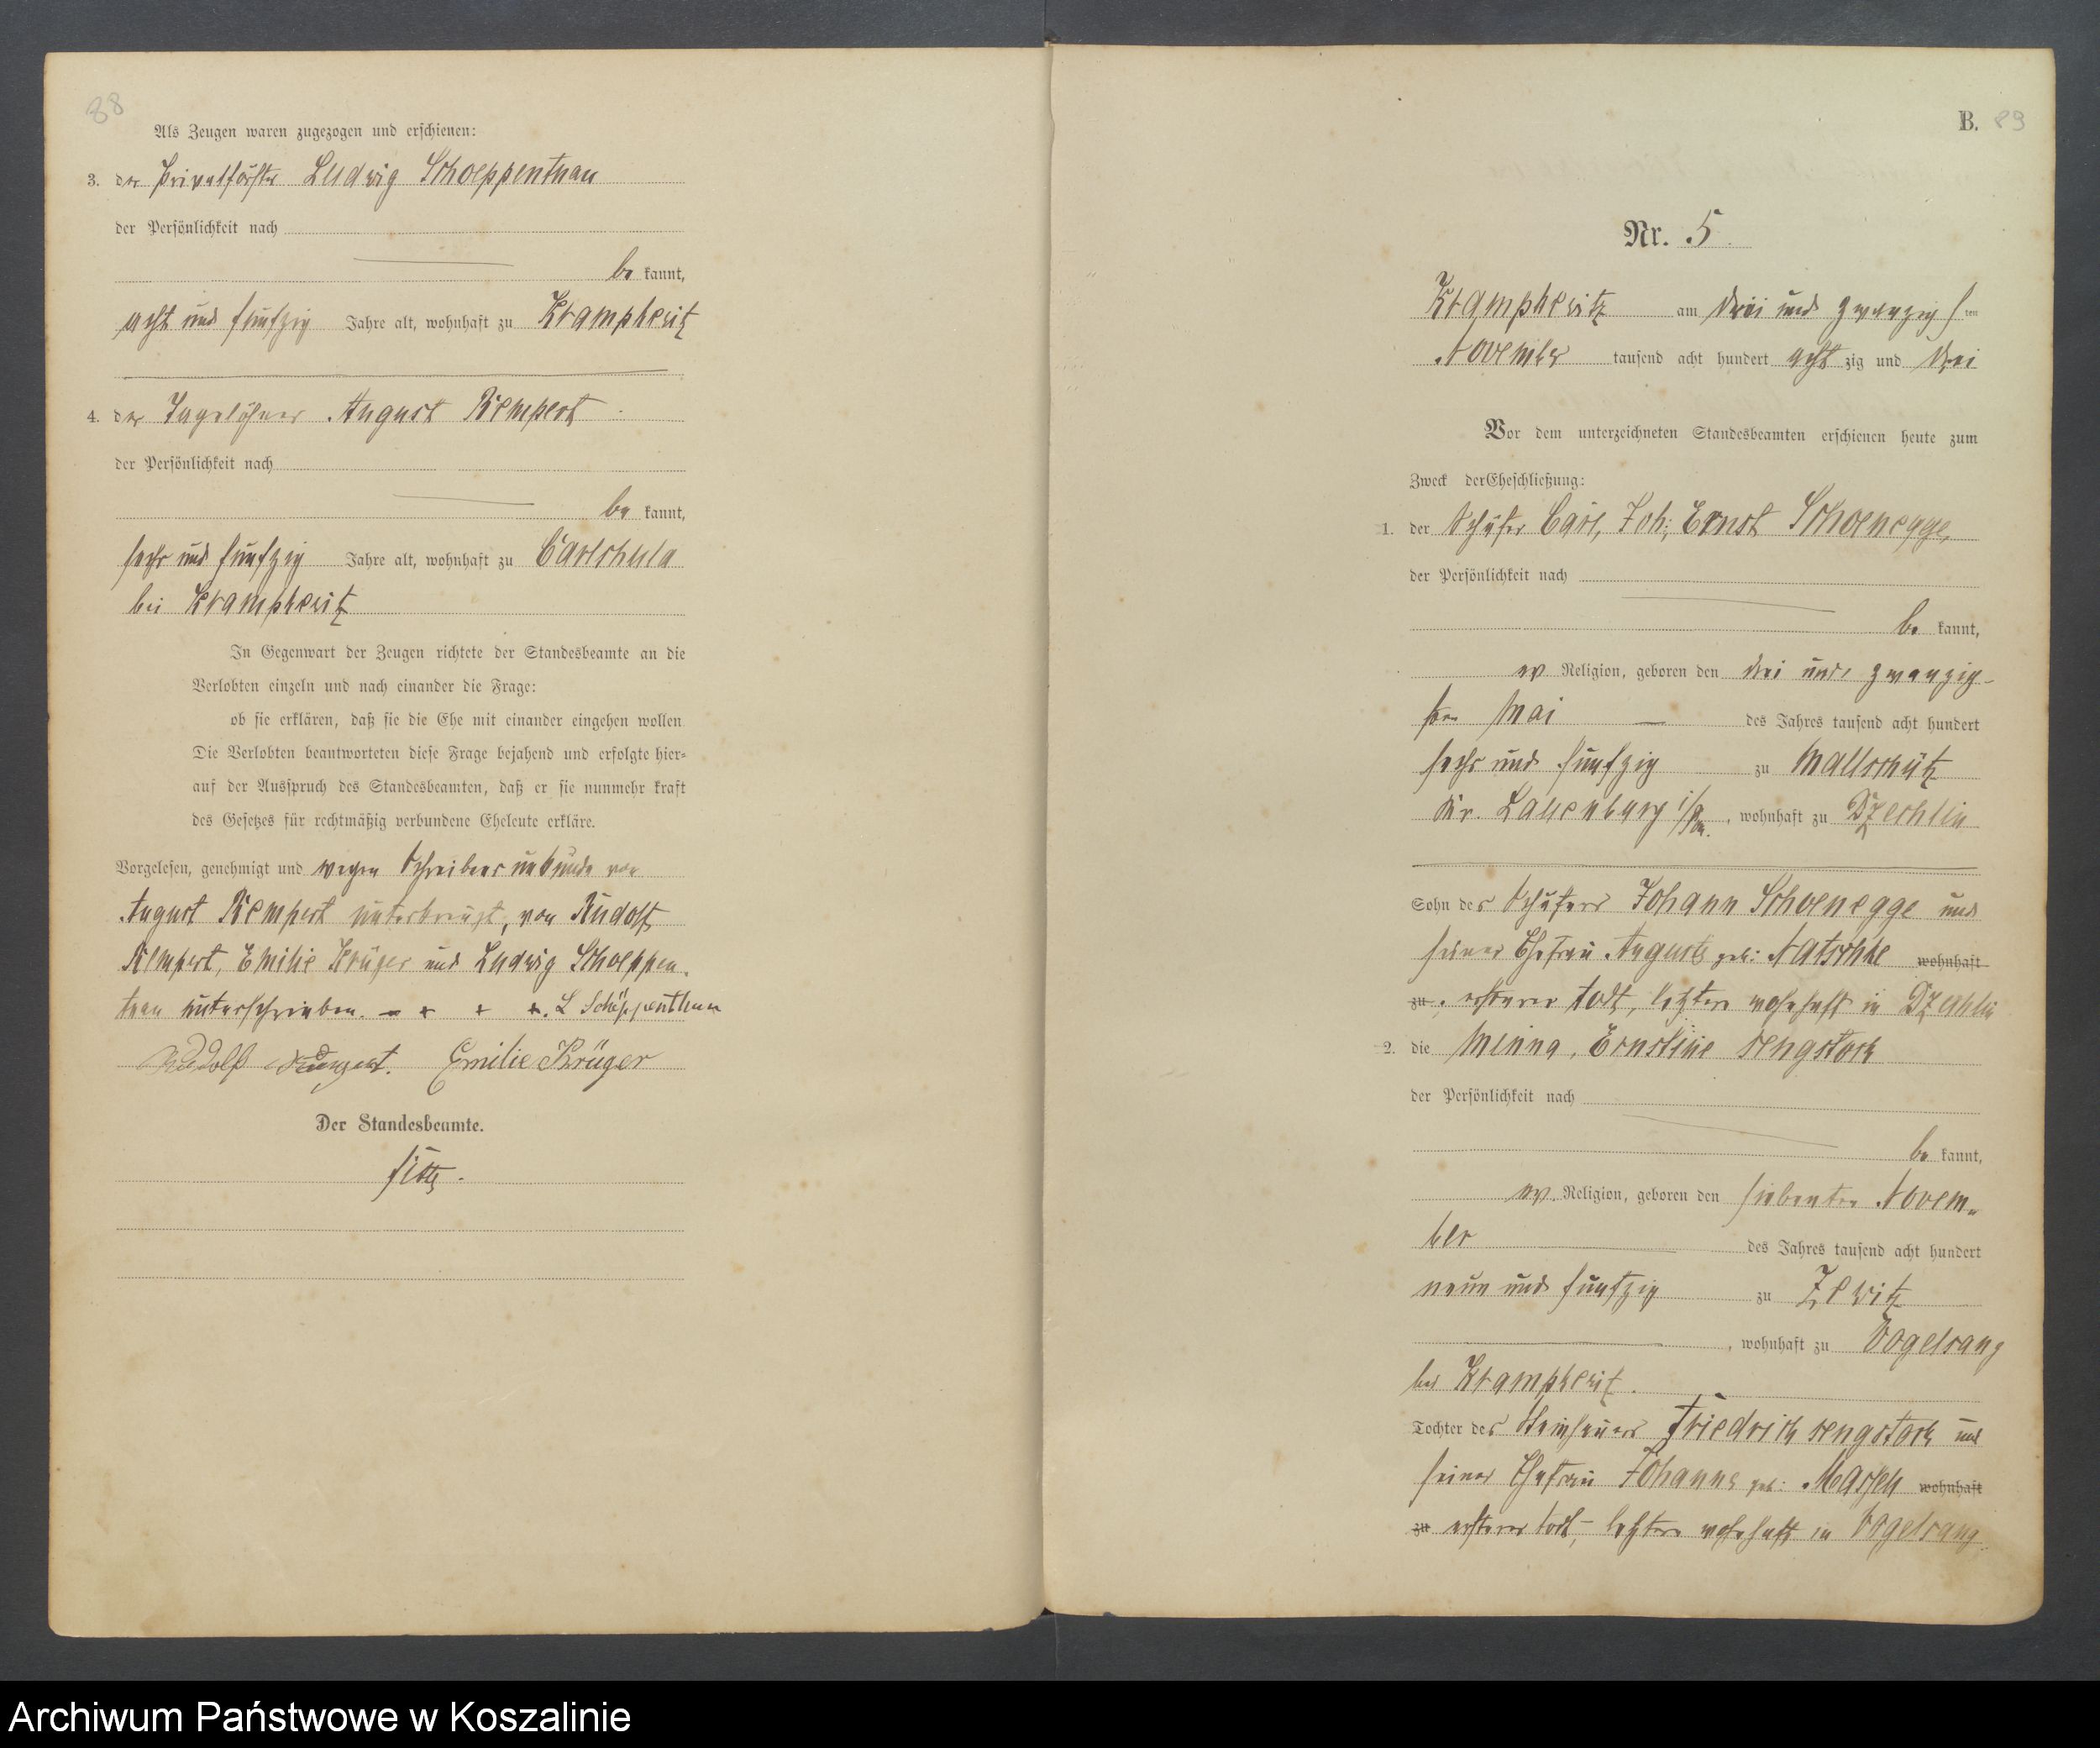 88
Als Zeugen waren zugezogen und erschienen:
3. der Privatförster Ludwig Schoeppenthau
der Persönlichkeit nach
be kannt,
acht und funfzig Jahre alt, wohnhaft zu Krampkewitz
4. der Tagelöhner August Rempert
der Persönlichkeit nach
be kannt,
sechs und funfzig Jahre alt, wohnhaft zu
bei Krampkewitz
In Gegenwart der Zeugen richtete der Standesbeamte an die
Verlobten einzeln und nach einander die Frage:
ob sie erklären, daß sie die Ehe mit einander eingehen wollen
Die Verlobten beantworteten diese Frage bejahend und erfolgte hier-
auf der Ausspruch des Standesbeamten, daß er sie nunmehr kraft
des Gesetzes für rechtmäßig verbundene Eheleute erkläre.
Vorgelesen, genehmigt und wegen Schreibens unkunde von
August Rempert unterkreuzt, von Rudolf
Rempert, Emilie Krüger und Ludwig Schoeppen-
thau unterschrieben. - + + +. L Schöppenthau
Rudolf Rempert. Emilie Krüger
Der Standesbeamte.
B. 89
Nr. 5
Krampkewitz am drei und zwanzigs ten
November tausend acht hundert acht zig und drei
Vor dem unterzeichneten Standesbeamten erschienen heute zum
Zweck der Eheschließung:
1. der Schäfer Carl, Joh: Ernst Schoenegge,
der Persönlichkeit nach
be kannt,
ev Religion, geboren den drei und zwanzig-
sten Mai des Jahres tausend acht hundert
sechs und funfzig zu Mallschütz
Kr. Lauenburg i/Pom. , wohnhaft zu Dzechlin
Sohn des Schäfers Johann Schoenegge und
seiner Ehefrau Auguste geb: Natschke wohnhaft
zu, ersterer todt, letztere wohnhaft in Dzechlin
2. die Minna, Ernstine Rengstock
der Persönlichkeit nach
be kannt,
ev Religion, geboren den siebenten Novem-
ber des Jahres tausend acht hundert
neun und funfzig zu Zewitz
, wohnhaft zu Vogelsang
bei Krampkewitz.
Tochter des Steinhauers Friedrich Rengstock und
seiner Ehefrau Johanne geb: Massch wohnhaft
zu ersterer todt, letztere wohnhaft in Vogelsang
Archiwum Państwowe w Koszalinie